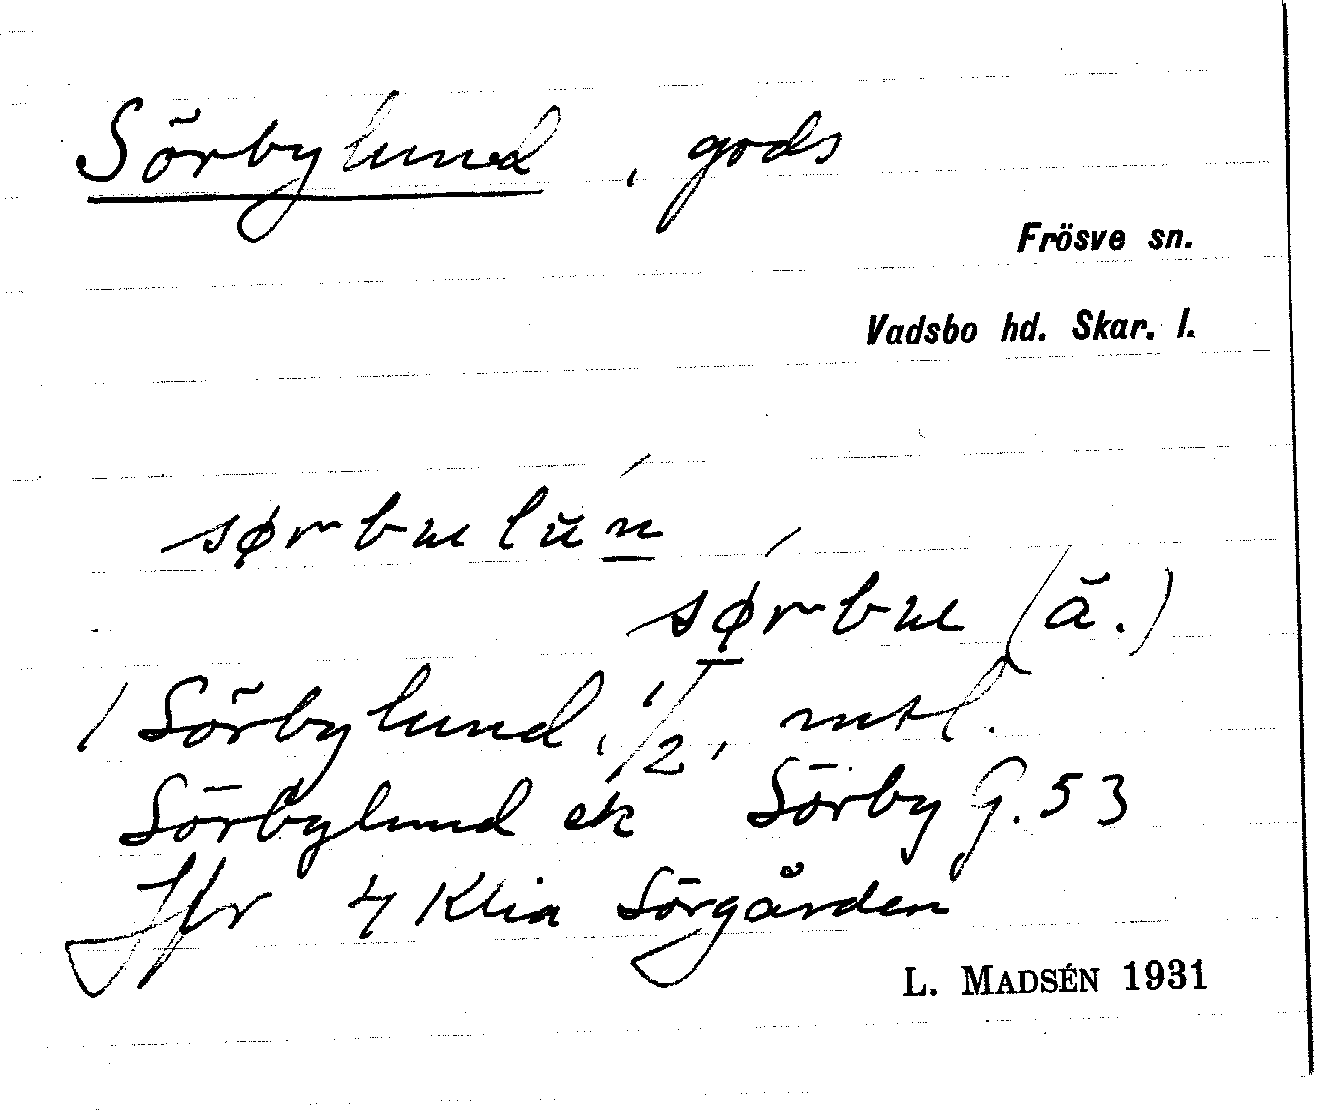 Sörbylund, gods
Frösve sn.
Vadsbo hd. Skar. l.
sørbɯlŭn
sørbɯ (ä.)
1 Sörbylund, 1/2, mtl.
Sörbylund ek Sörby G. 53
Jfr 4 Klia Sörgården
L. MADSÉN 1931